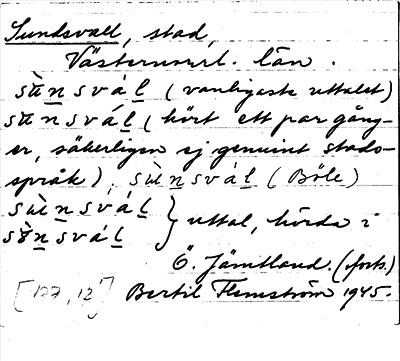 Sundsvall, stad,
Västernorrl. län.
sù̠n̠svál̠ (vanligaste uttalet)
su̇n̠svál̠ (hört ett par gång-
er, säkerligen ej genuint stads-
språk), sùn̠svál̠ (Böle)
sùn̠svál̠ } uttal, hörda i
sön̠svál̠
Ö. Jämtland. (forts.)
[177, 12] Bertil Flemström 1945.